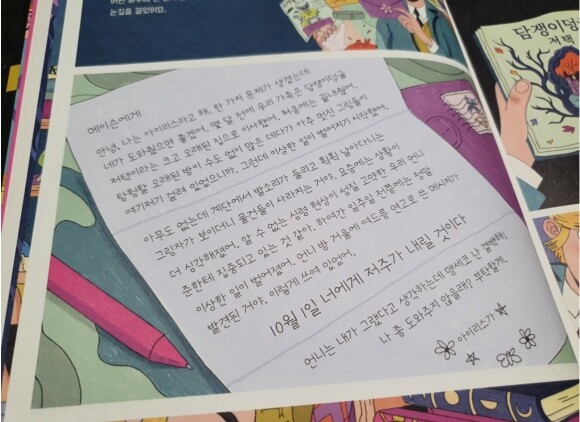 눈길을 끌었어요.
담쟁이덩
저택
메이슨에게
안녕, 나는 아이리스라고 해. 한 가지 문제가 생겼는데
네가 도와줬으면 좋겠어. 몇 달 전에 우리 가족은 담쟁이덩굴
저택이라는 크고 오래된 집으로 이사했어. 처음에는 끝내줬어.
탐험할 오래된 방이 수도 없이 많은 데다가 아주 멋진 그림들이
여기저기 걸려 있었으니까. 그런데 이상한 일이 벌어지기 시작했어.
아무도 없는데 계단에서 발소리가 들리고 휙휙 날아다니는
그림자가 보이더니 물건들이 사라지는 거야. 요즘에는 상황이
더 심각해졌어. 알 수 없는 심령 현상이 성질 고약한 우리 언니
준한테 집중되고 있는 것 같아. 하여간 일주일 전쯤에는 정말
이상한 일이 벌어졌어. 언니 방 거울에 여드름 연고로 쓴 메시지가
발견된 거야. 이렇게 쓰여 있었어.
10월 1일 너에게 저주가 내릴 것이다
언니는 내가 그랬다고 생각하는데 맹세코 난 결백해.
나 좀 도와주지 않을래? 부탁할게.
아이리스가